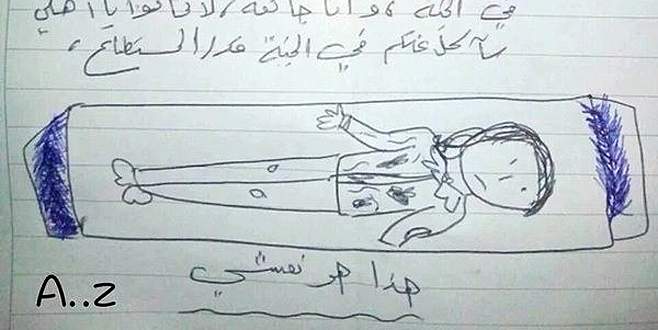 في الجنة ، وأنا جائعة ، لا تحزنوا يا أهلي
سآكل عنكم في الجنة قدر المستطاع ،
هذا هو نعشي
A..z